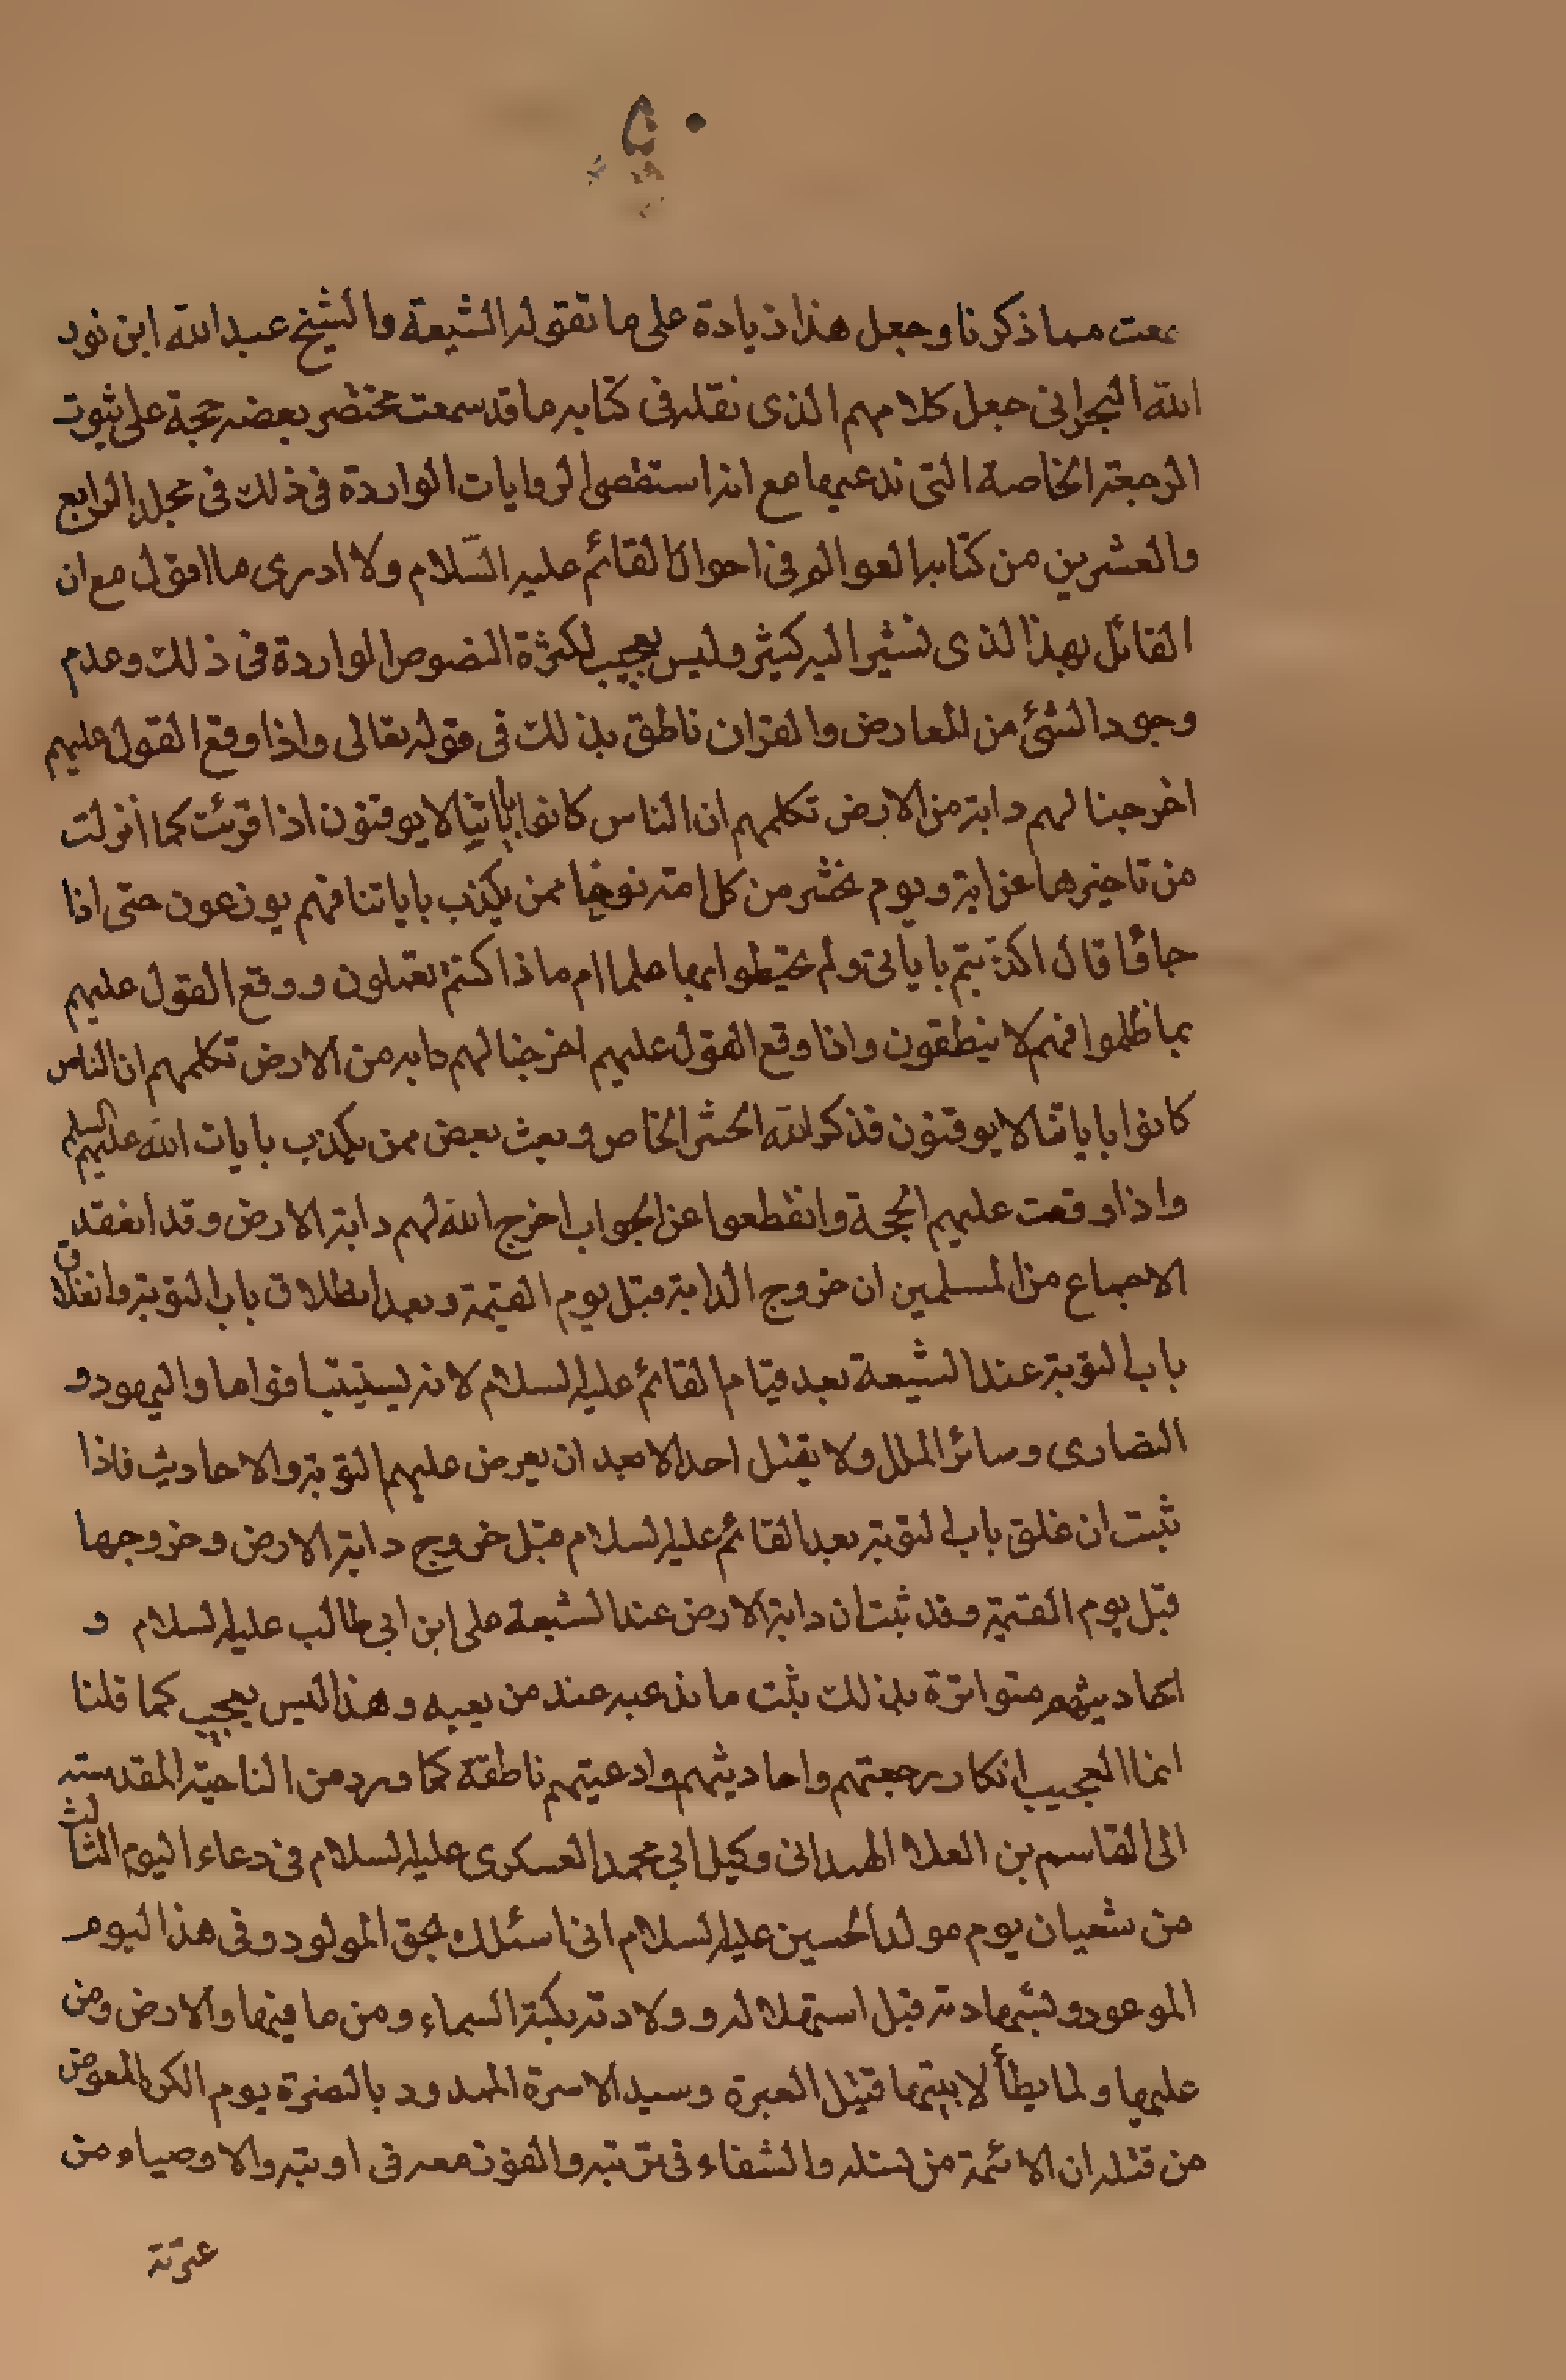 ٥٠
سمعت مما ذكرنا وجعل هذا زيادة على ما تقوله الشيعة والشيخ عبد الله ابن نور
الله البحراني جعل كلامهم الذي نقله في كتابه ما قد سمعت مختصر بعضه حجة على ثبوت
الرجعة الخاصة التي ندعيها مع انه استقصى الروايات الواردة في ذلك في مجلد الرابع
والعشرين من كتابه العوالم في احوال القائم عليه السّلام ولا ادري ما اقول مع ان
القائل بهذا الذي نشير اليه كثير وليس بعجيب لكثرة النصوص الواردة في ذلك وعدم
وجود الشئ من المعارض والقران ناطق بذلك في قوله تعالى واذا وقع القول عليهم
اخرجنا لهم دابة من الارض تكلمهم ان الناس كانوا باياتنا لا يوقنون اذا قرئت كما انزلت
من تاخيرها عن اية ويوم نحشر من كل امة فوجا ممن يكذب باياتنا فهم يوزعون حتى اذا
جاؤا قال اكذبتم باياتي ولم تحيطوا بها علما ام ماذا كنتم تعملون ووقع القول عليهم
بما ظلموا فهم لا ينطقون واذا وقع القول عليهم اخرجنا لهم دابة من الارض تكلمهم ان الناس
كانوا باياتنا لا يوقنون فذكر الله الحشر الخاص وبعث بعض ممن يكذب بايات الله عليهم السلم
واذا وقعت عليهم الحجة وانقطعوا عن الجواب اخرج الله لهم دابة الارض وقد انعقد
الاجماع من المسلمين ان خروج الدابة قبل يوم القيمة وبعد انطلاق باب التوبة وانغلاق
باب التوبة عند الشيعة بعد قيام القائم عليه السلام لانه يستيتب اقواما واليهود و
النصارى وسائر الملل ولا يقتل احدا الا بعد ان يعرض عليهم التوبة والاحاديث فاذا
ثبت ان غلق باب التوبة بعد القائم عليه السلام قبل خروج دابة الارض وخروجها
قبل يوم القيمة وقد ثبت ان دابة الارض عند الشيعة علي ابن ابي طالب عليه السلام و
احاديثهم متواترة بذلك ثبت ما ندعيه عند من يعيه وهذا ليس بعجيب كما قلنا
انما العجيب انكار رجعتهم واحاديثهم وادعيتهم ناطقة كما ورد من الناحية المقدسة
الى القاسم بن العلا الهمداني وكيل ابي محمد العسكري عليه السلام في دعاء اليوم الثالث
من شعبان يوم مولد الحسين عليه السلام اني اسئلك بحق المولود في هذا اليوم
الموعود بشهادته قبل استهلاله وولادته بكته السماء ومن ما فيها والارض ومن
عليها ولما يطأ لابتيها قتيل العبرة وسيد الاسرة الممدود بالنصرة يوم الكرة المعوض
من قتله ان الائمة من نسله والشفاء في تربته والفوز معه في اوبته والاوصياء من
عترته